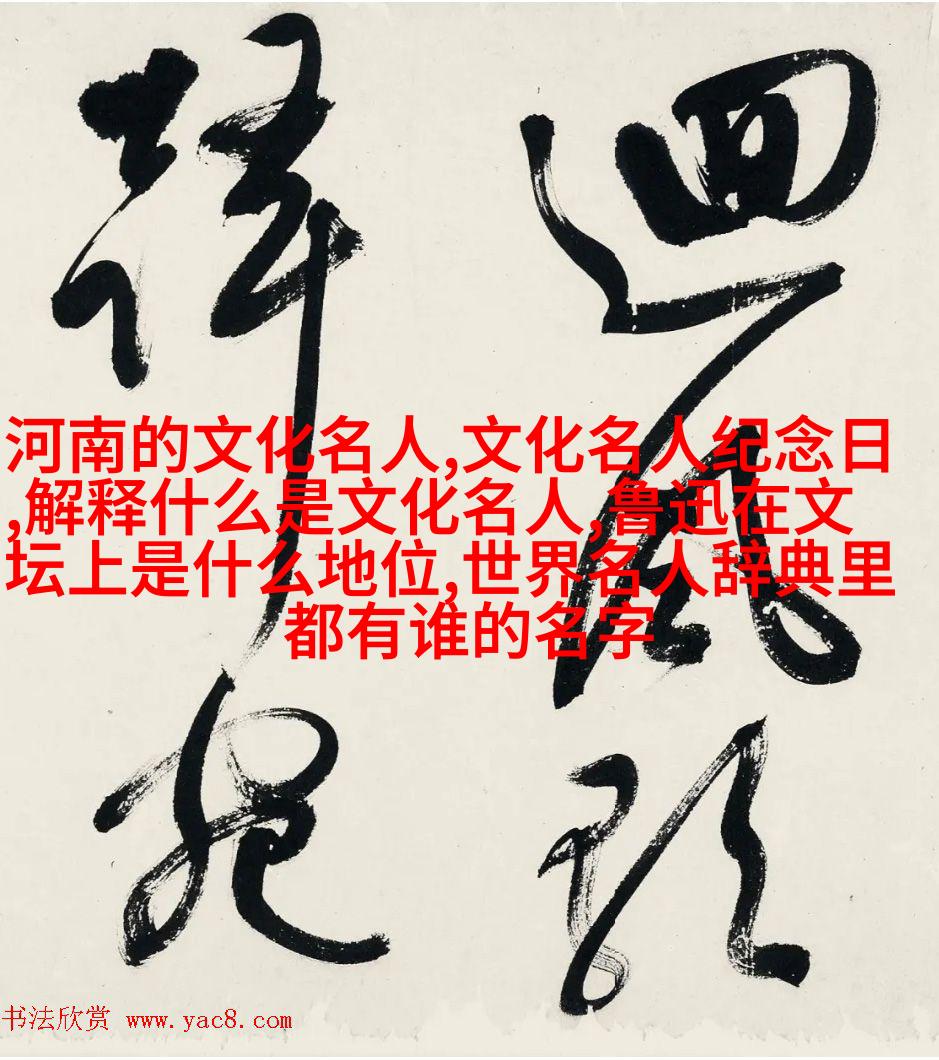 迴風
河南的文化名人,文化名人纪念日
,解释什么是文化名人,鲁迅在文
坛上是什么地位,世界名人辞典里
都有谁的名字
书法欣赏 www.yac8.com